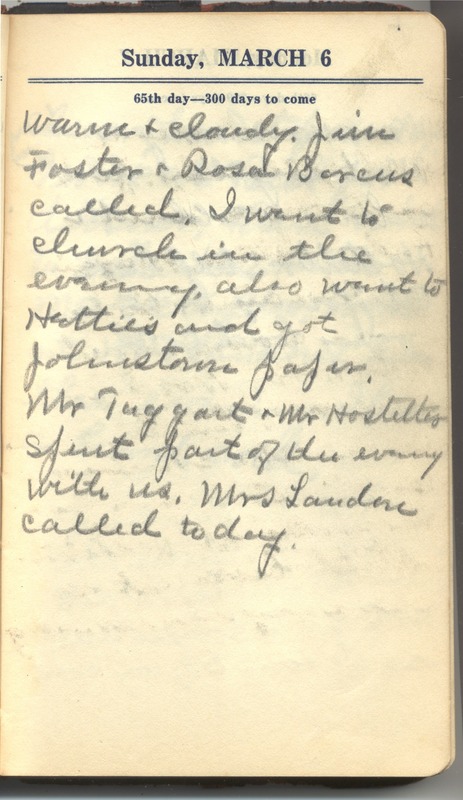 Sunday, MARCH 6
65th day—300 days to come
Warm + cloudy. Jim
Foster + Rosa Barcus
called. I went to
church in the
evening, also went to
Hettie's and got
Johnstown paper.
Mr Taggart + Mr Hostetter
spent part of the evening
with us. Mrs Landon
called today.